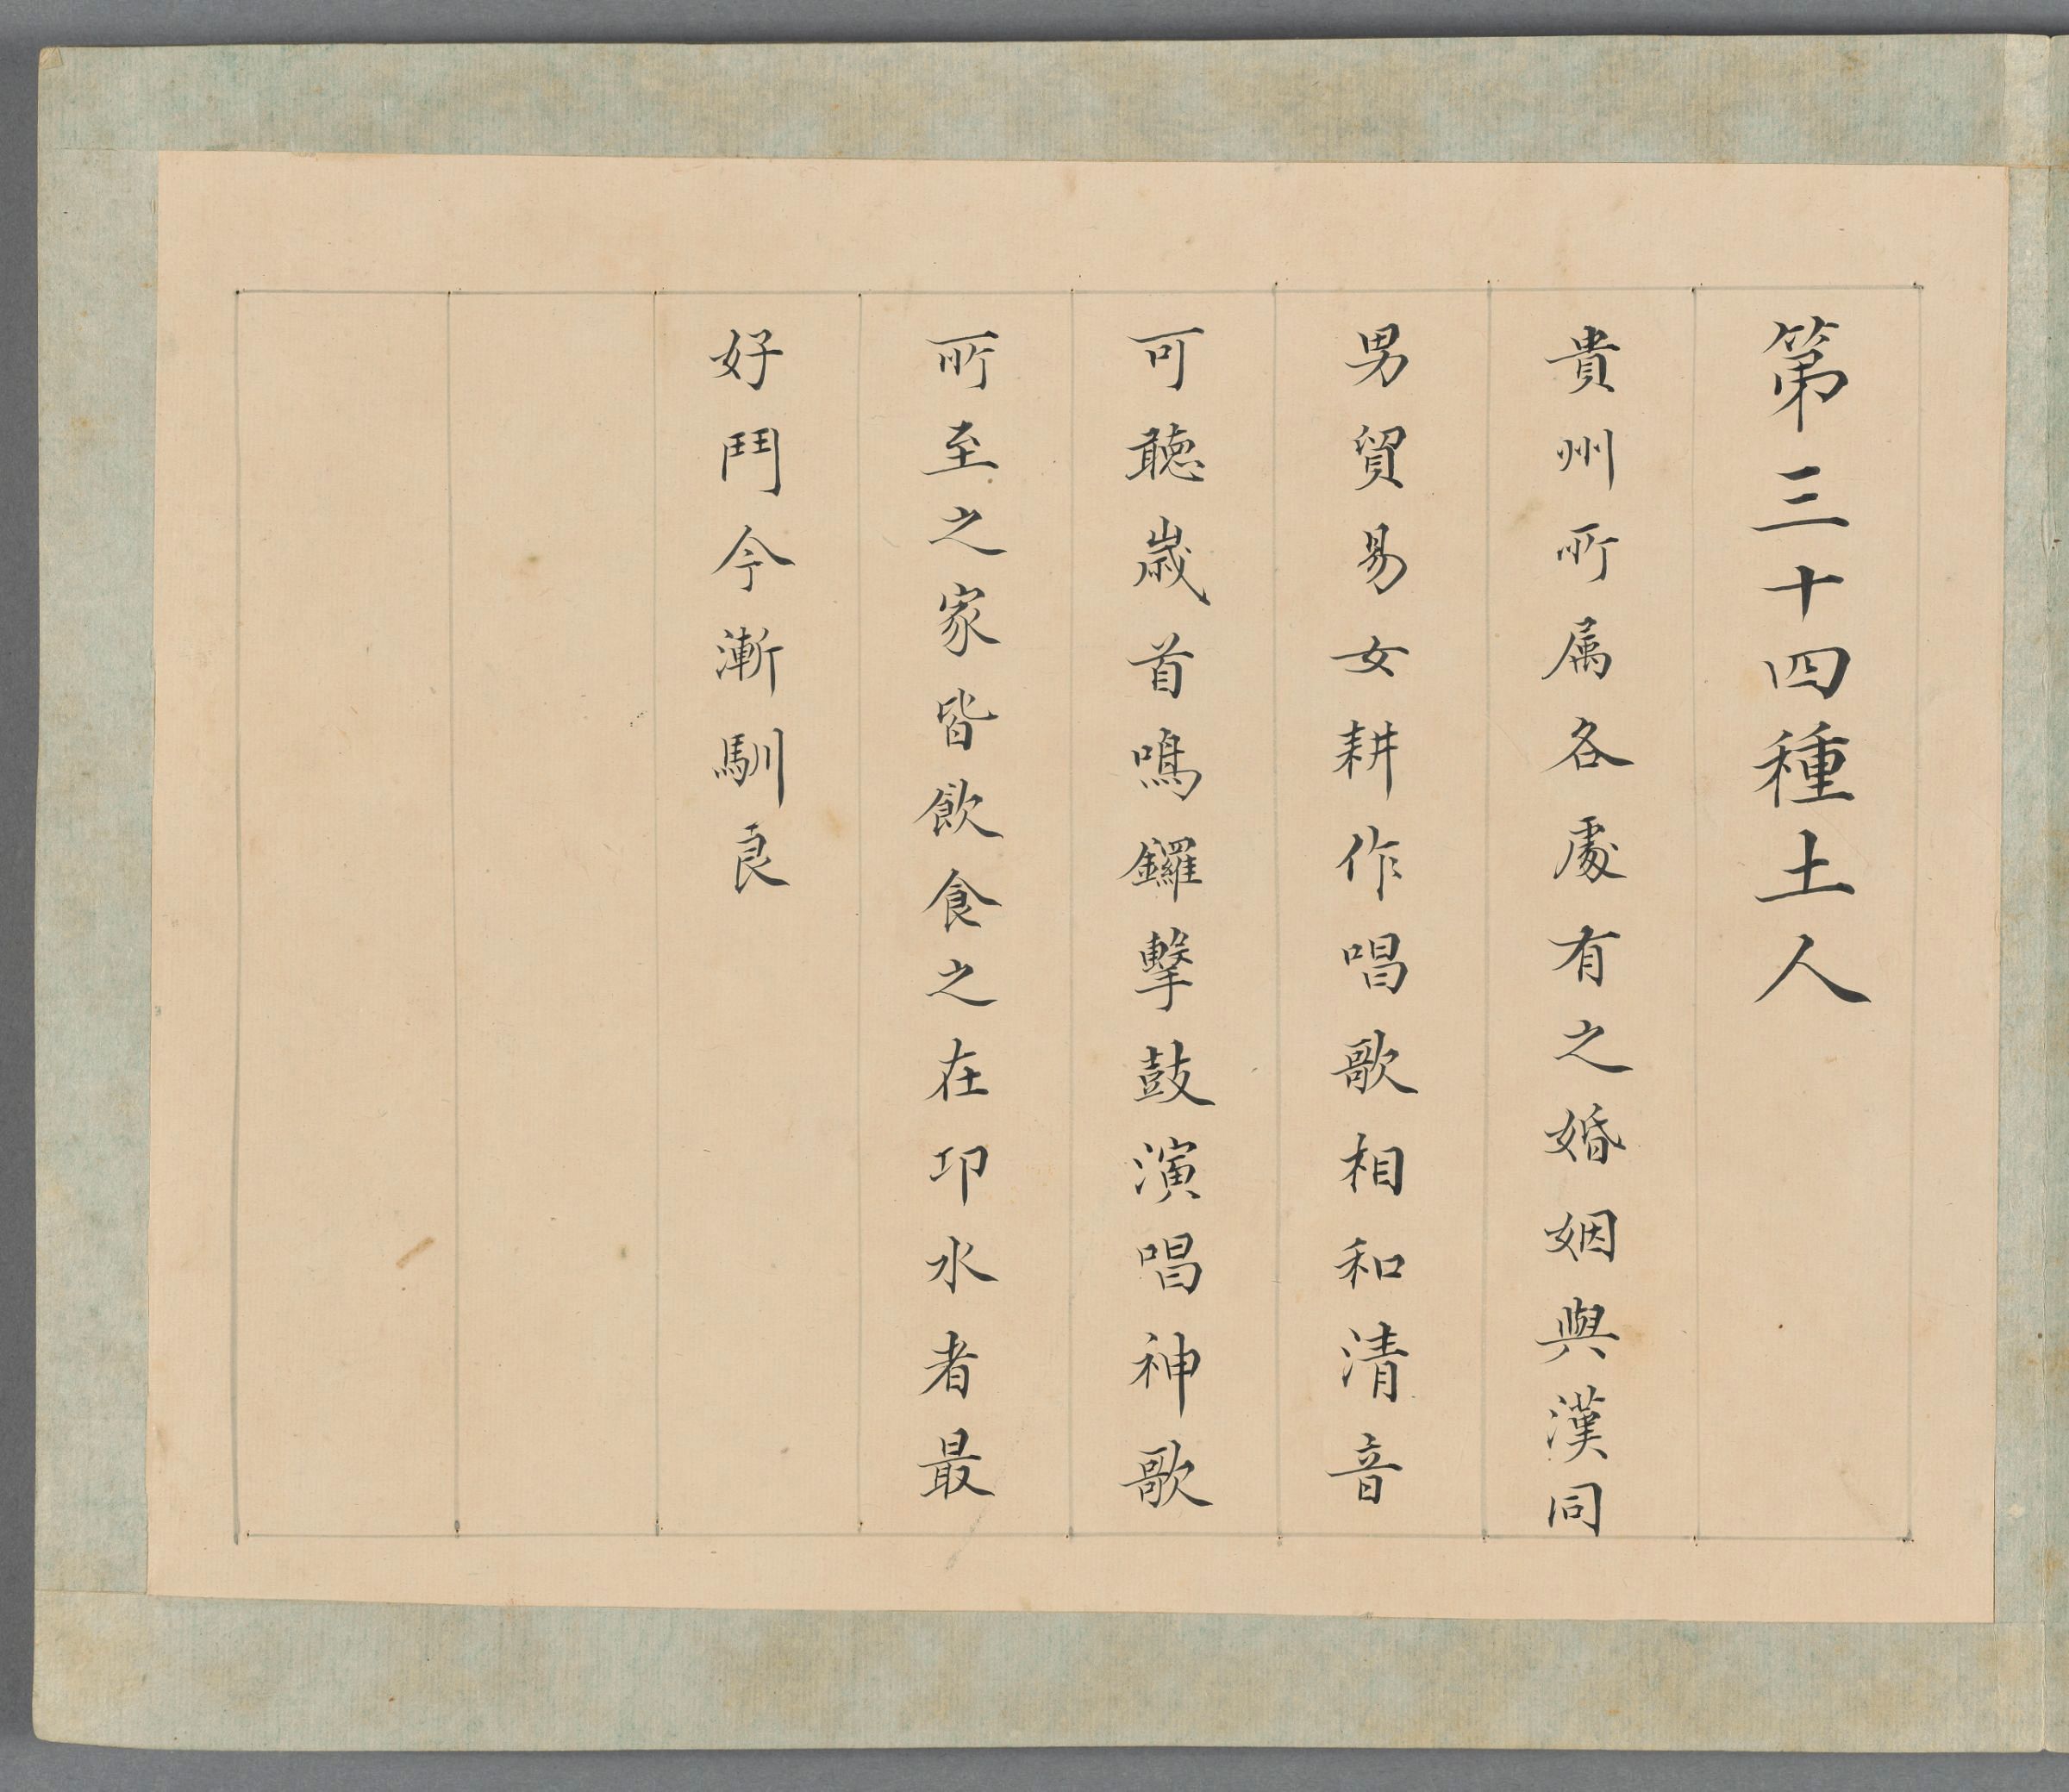 第三十四種土人
貴州所属各處有之婚姻與漢同
男貿易女耕作唱歌相和清音
可聽歲首鳴鑼擊鼓演唱神歌
所至之家皆飲食之在卬水者最
好鬥今漸馴良